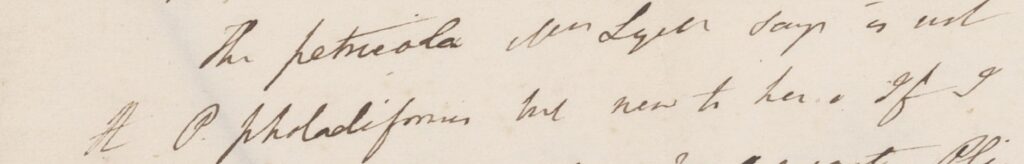 The petricola Mrs Lyell says is not
P. pholadiformis but new to her. If I